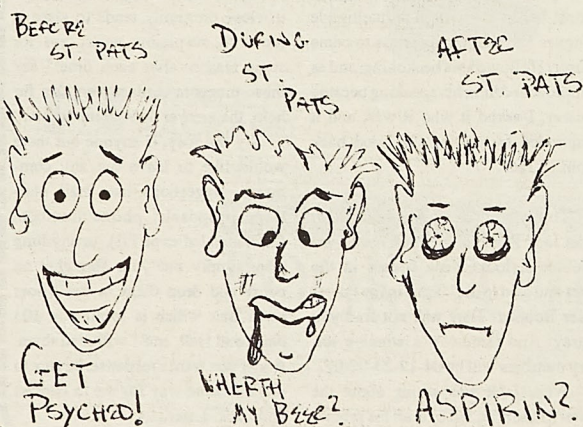 BEFORE
ST. PATS
GET
PSYCHED!
DURING
ST
PATS
WHERTH
MY BEER?
AFTER
ST PATS
ASPIRIN?